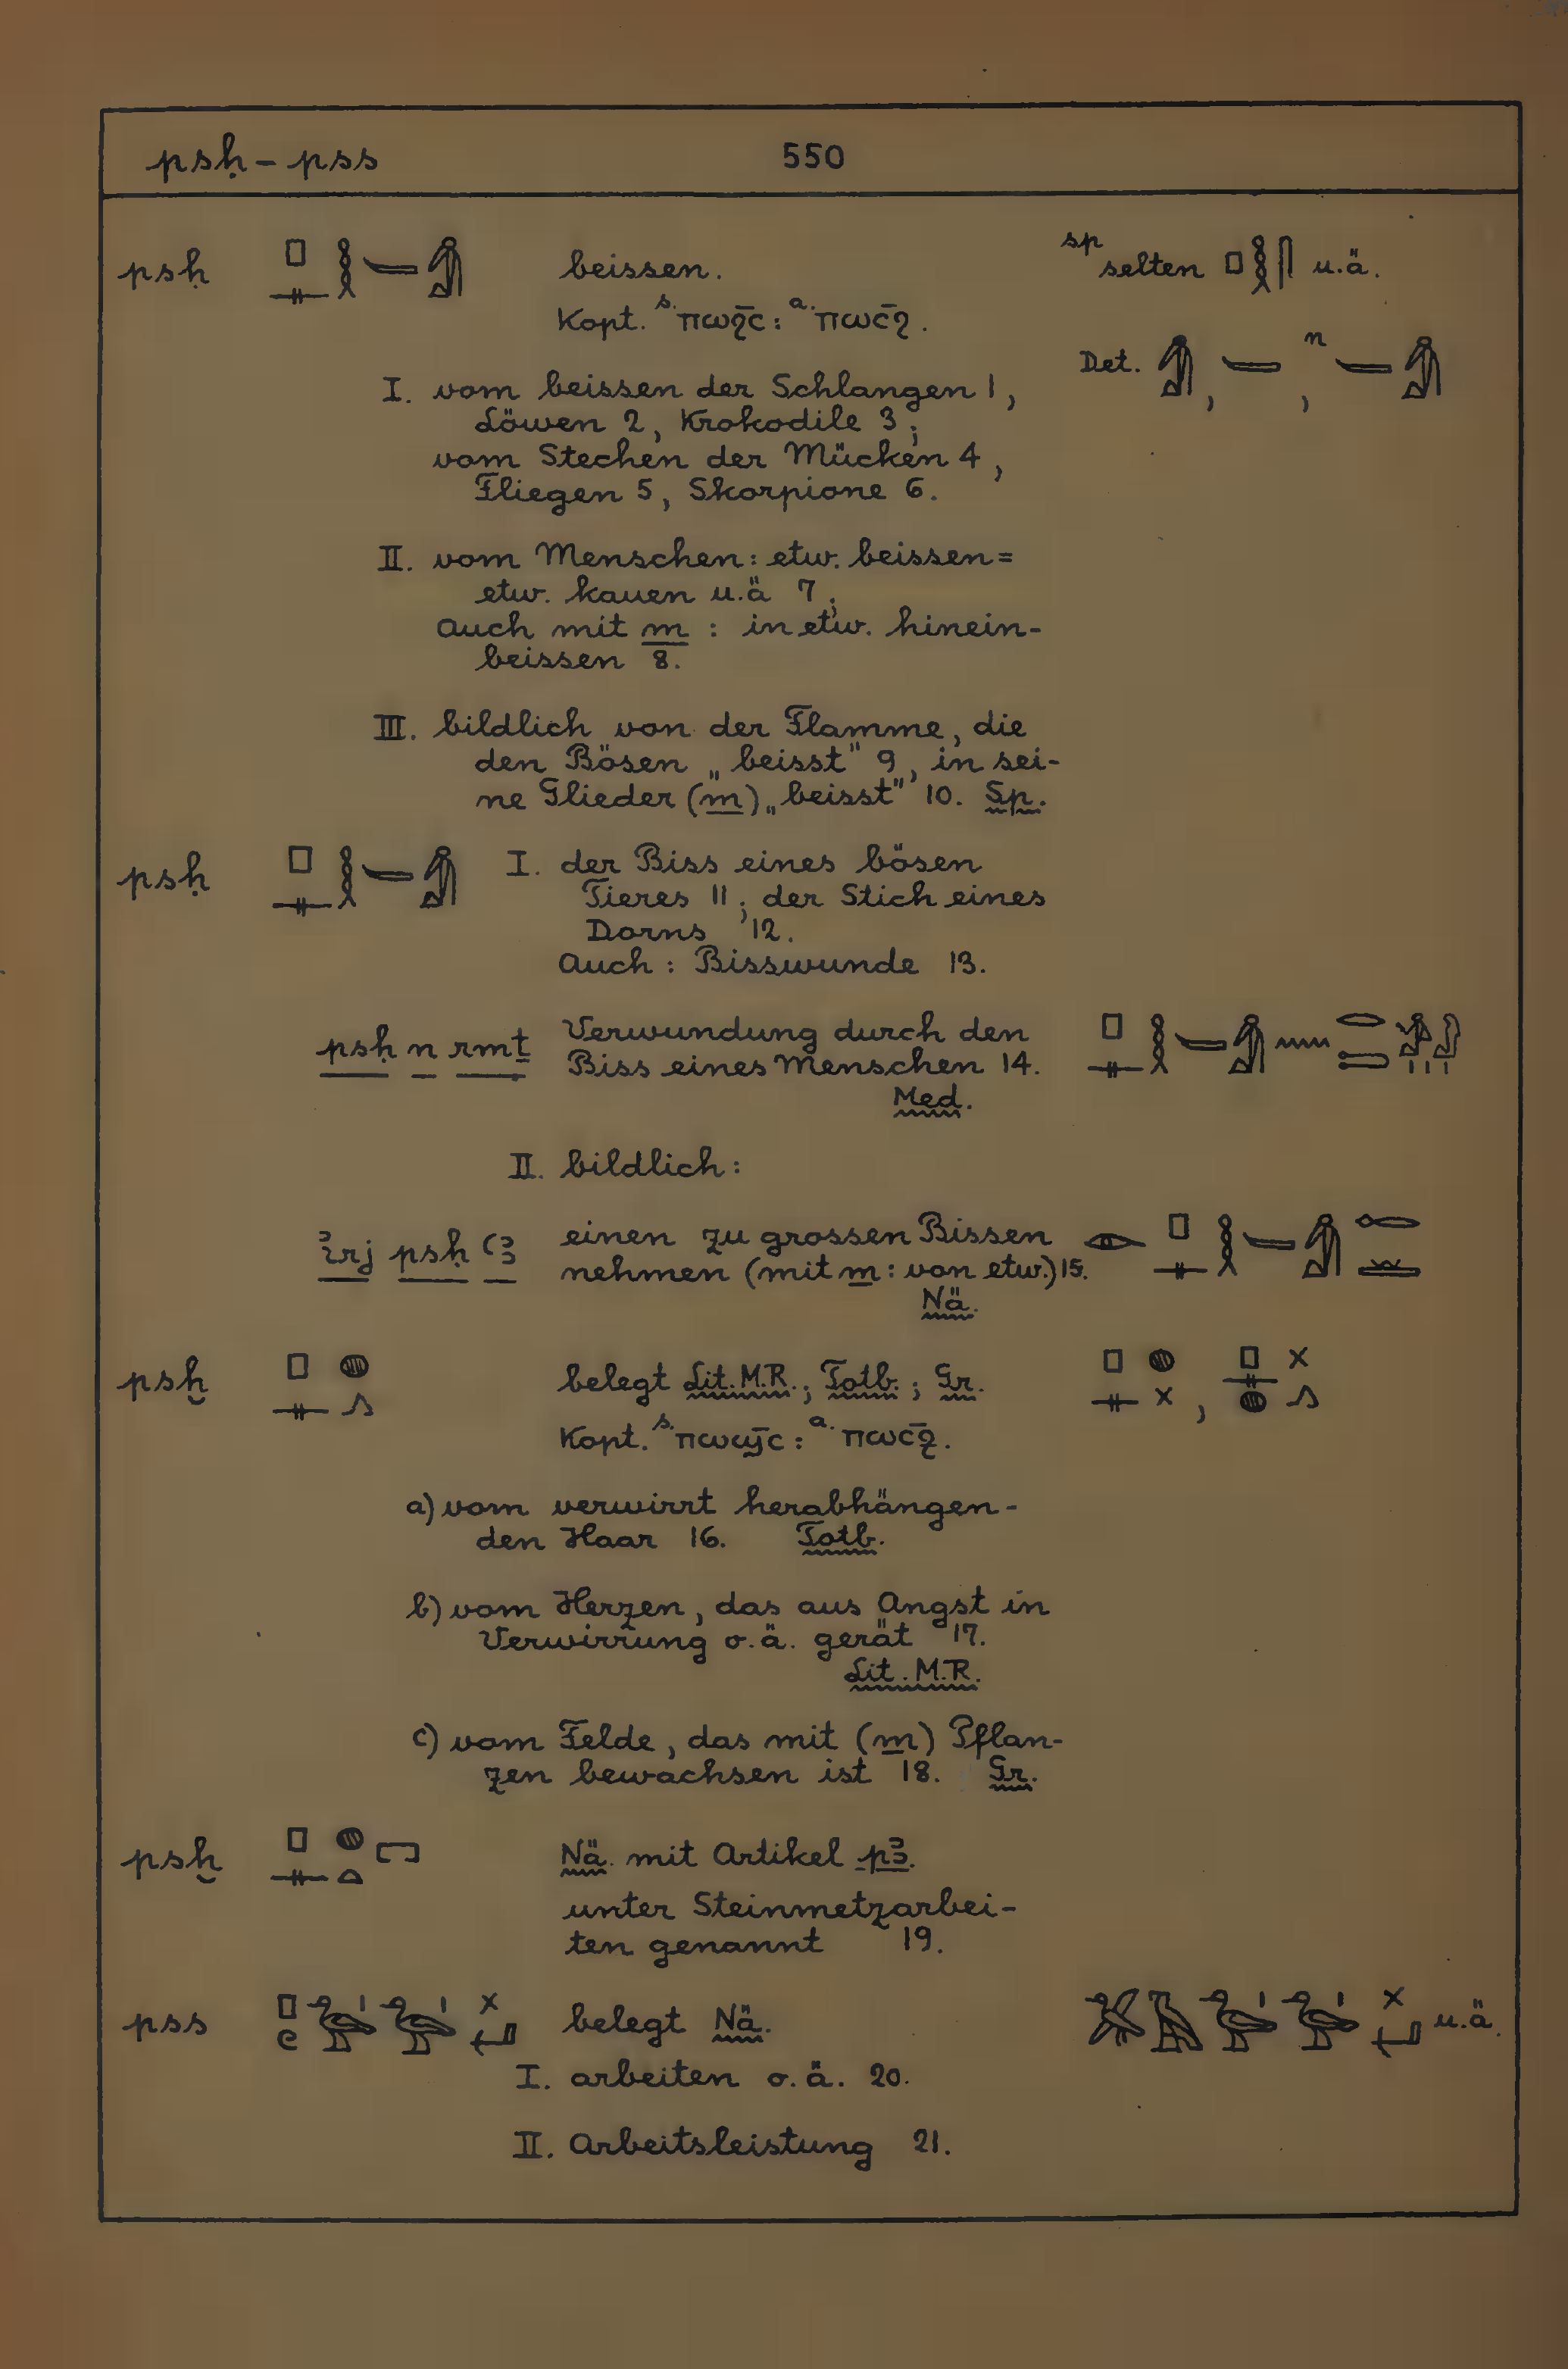 psḥ – pss 550
psḥ beissen. sp selten u.ä.
Kopt. s. ⲡⲱϩⲥ̄ : a. ⲡⲱⲥ̄ϩ.
Det. , , n
I. vom beissen der Schlangen 1,
Löwen 2, Krokodile 3;
vom Stechen der Mücken 4,
Fliegen 5, Skorpione 6.
II. vom Menschen: etw. beissen =
etw. kauen u.ä 7;
Auch mit m : in etw. hinein-
beissen 8.
III. bildlich von der Flamme, die
den Bösen „beisst" 9, in sei-
ne Glieder (m) „beisst" 10. Sp.
psḥ I. der Biss eines bösen
Tieres 11; der Stich eines
Dorns 12.
Auch: Bisswunde 13.
psḥ n rmṯ Verwundung durch den
Biss eines Menschen 14.
Med.
II. bildlich:
ꞽrj psḥ ꜥꜣ einen zu grossen Bissen
nehmen (mit m : von etw.) 15.
Nä.
psḫ belegt Lit. M.R.; Totb.; Gr.
Kopt. s. ⲡⲱϣⲥ̄ : a. ⲡⲱⲥ̄ⳉ.
a) vom verwirrt herabhängen-
den Haar 16. Totb.
b) vom Herzen, das aus Angst in
Verwirrung o.ä. gerät 17.
Lit. M.R.
c) vom Felde, das mit (m) Pflan-
zen bewachsen ist 18. Gr.
psḫ Nä. mit Artikel pꜣ.
unter Steinmetzarbei-
ten genannt 19.
pss belegt Nä. u.ä.
I. arbeiten o.ä. 20.
II. Arbeitsleistung 21.